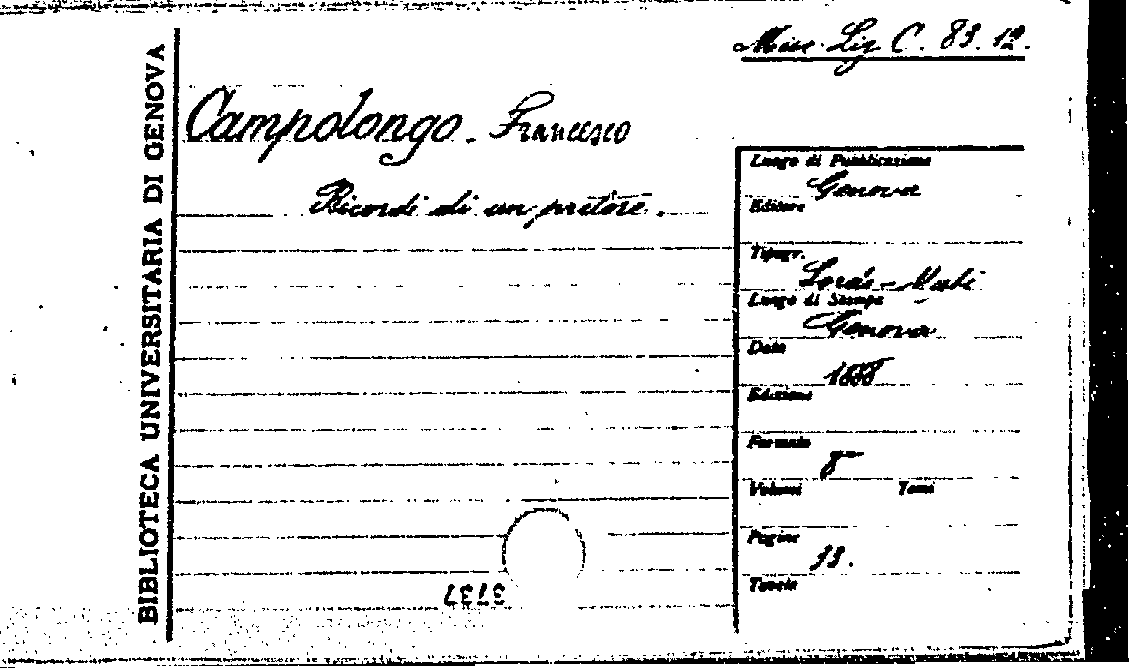 BIBLIOTECA UNIVERSITARIA DI GENOVA
Misc. Lig. C. 83. 12.
Campolongo. Francesco
Ricordi di un pretore.
Luogo di Pubblicazione
Genova
Editore
Tipogr.
Luogo di Stampa
Genova
Data
1888
Edizione
Formato
8°
Volumi Tomi
Pagine
Tavole
3737